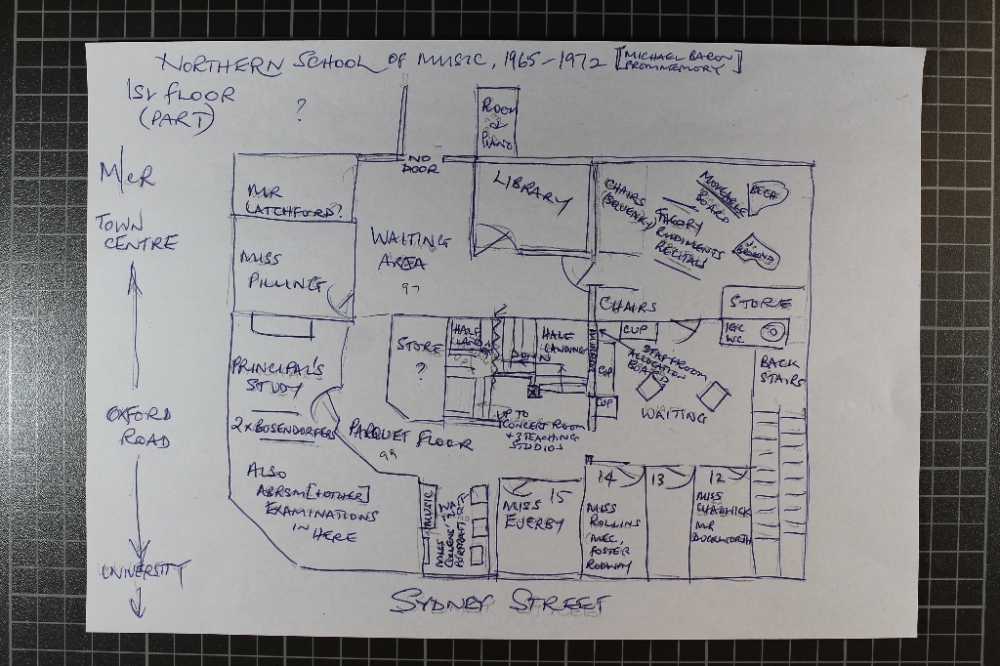 NORTHERN SCHOOL OF MUSIC, 1965-1972 [MICHAEL BACON
FROM MEMORY]
1ST FLOOR
(PART)
?
ROOM
&
PIANO
M/CR
TOWN
CENTRE
OXFORD
ROAD
UNIVERSITY
NO
DOOR
MR
LATCHFORD?
MISS
PILLING
WAITING
AREA
LIBRARY
CHAIRS
(SQUEAKY)
MOVEABLE
BOARD
THEORY
RUDIMENTS
RECITALS
BECH
BROADWOOD
CHAIRS
STORE
PRINCIPAL'S
STUDY
2 x BOSENDORFERS
ALSO
ABRSM [+OTHER]
EXAMINATIONS
IN HERE
STORE
?
HALF
LANDING
UP
HALF
LANDING
DOWN
MIRROR
CUP
CUP
CUP
STAFF ROOM
ALLOCATION
BOARD
WC
WAITING
BACK
STAIRS
UP TO
CONCERT ROOM
+ 3 TEACHING
STUDIOS
PARQUET FLOOR
MUSIC
MISS
15
MISS
EVERBY
14
MISS
ROLLINS
MEC,
FOSTER
RODWAY
13
12
MISS
CHADWICK
MR
DUCKWORTH
SYDNEY STREET